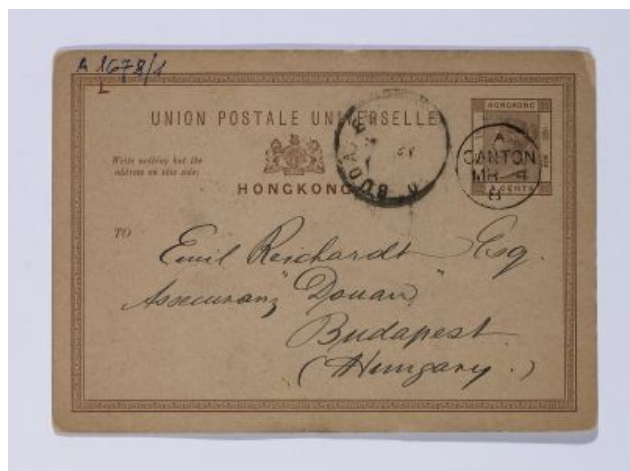 A 1678/1
L
UNION POSTALE UNIVERSELLE
HONGKONG
Write nothing but the
address on this side;
HONGKONG
BUDAP
A
CANTON
MR 4
CENTS
TO
Emil Reichardt Esq.
Assecuranz "Donau"
Budapest
(Hungary.)